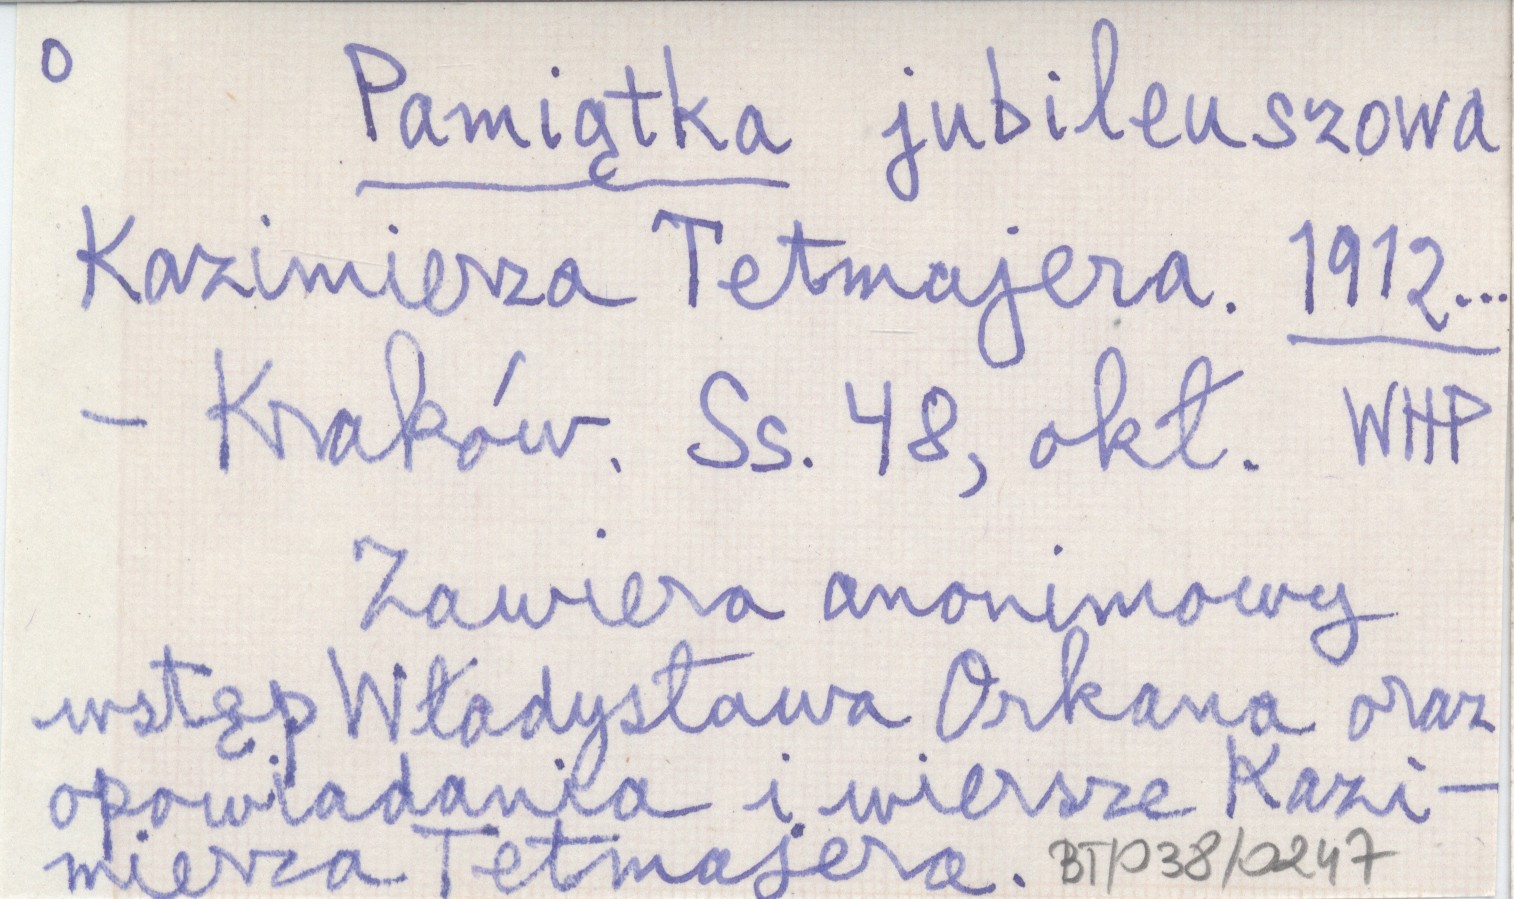 o Pamiątka jubileuszowa
Kazimierza Tetmajera. 1912...
- Kraków. Ss. 48, okł. WHP
Zawiera anonimowy
wstęp Władysława Orkana oraz
opowiadania i wiersze Kazi-
mierza Tetmajera. BTP38/0247